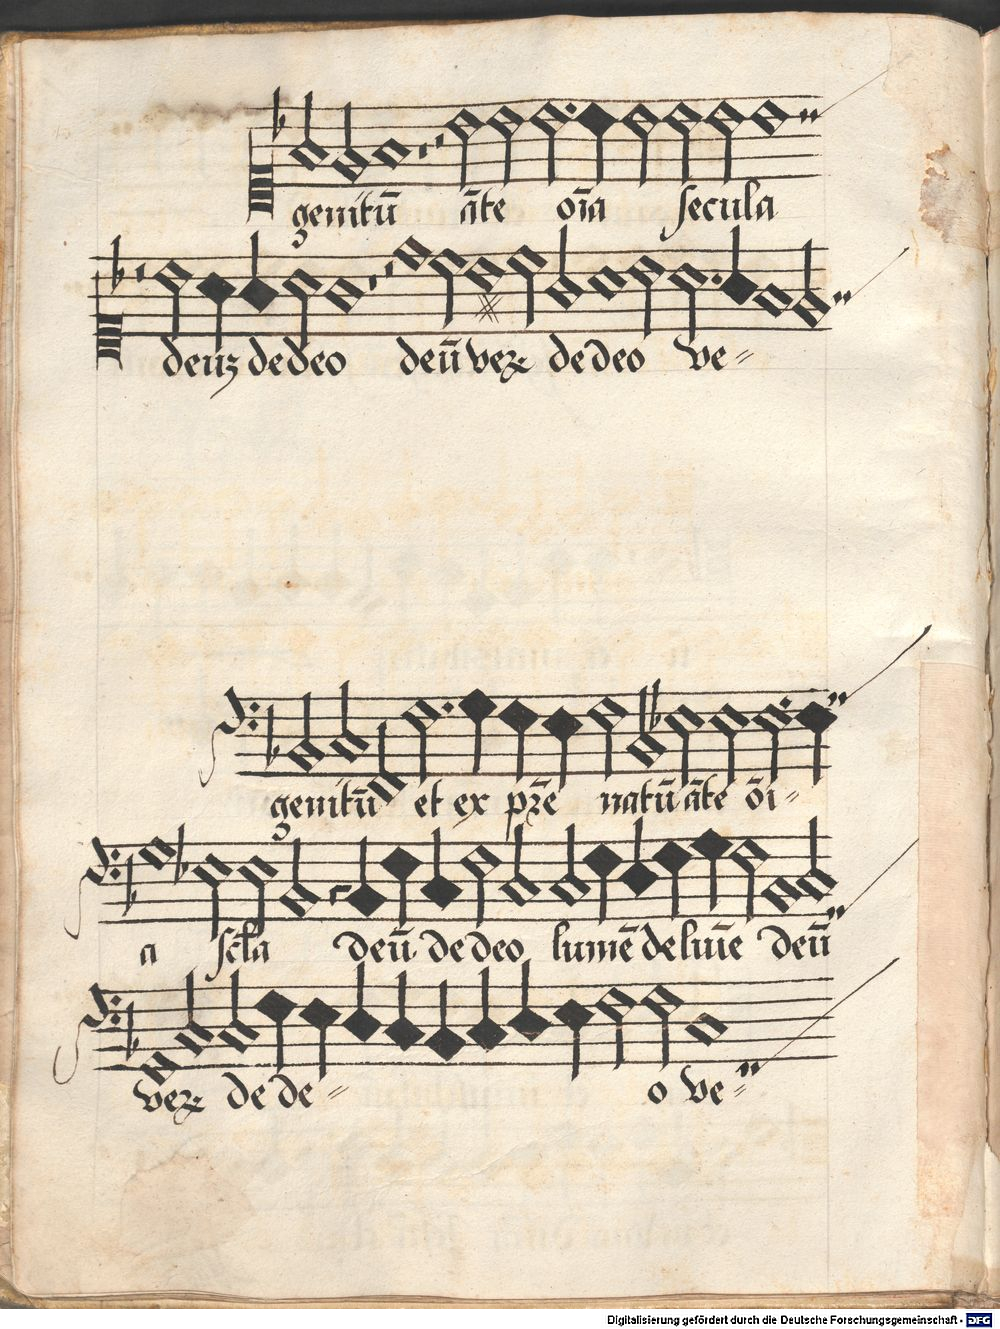 genitū āte oīa secula
deuʒ de deo deū veꝝ de deo ve〃
genitū et ex pr̄e natū āte ōi〃
a sc̄la deū de deo lumē de luīe deū
veꝝ de de〃 o ve〃
Digitalisierung gefördert durch die Deutsche Forschungsgemeinschaft - DFG